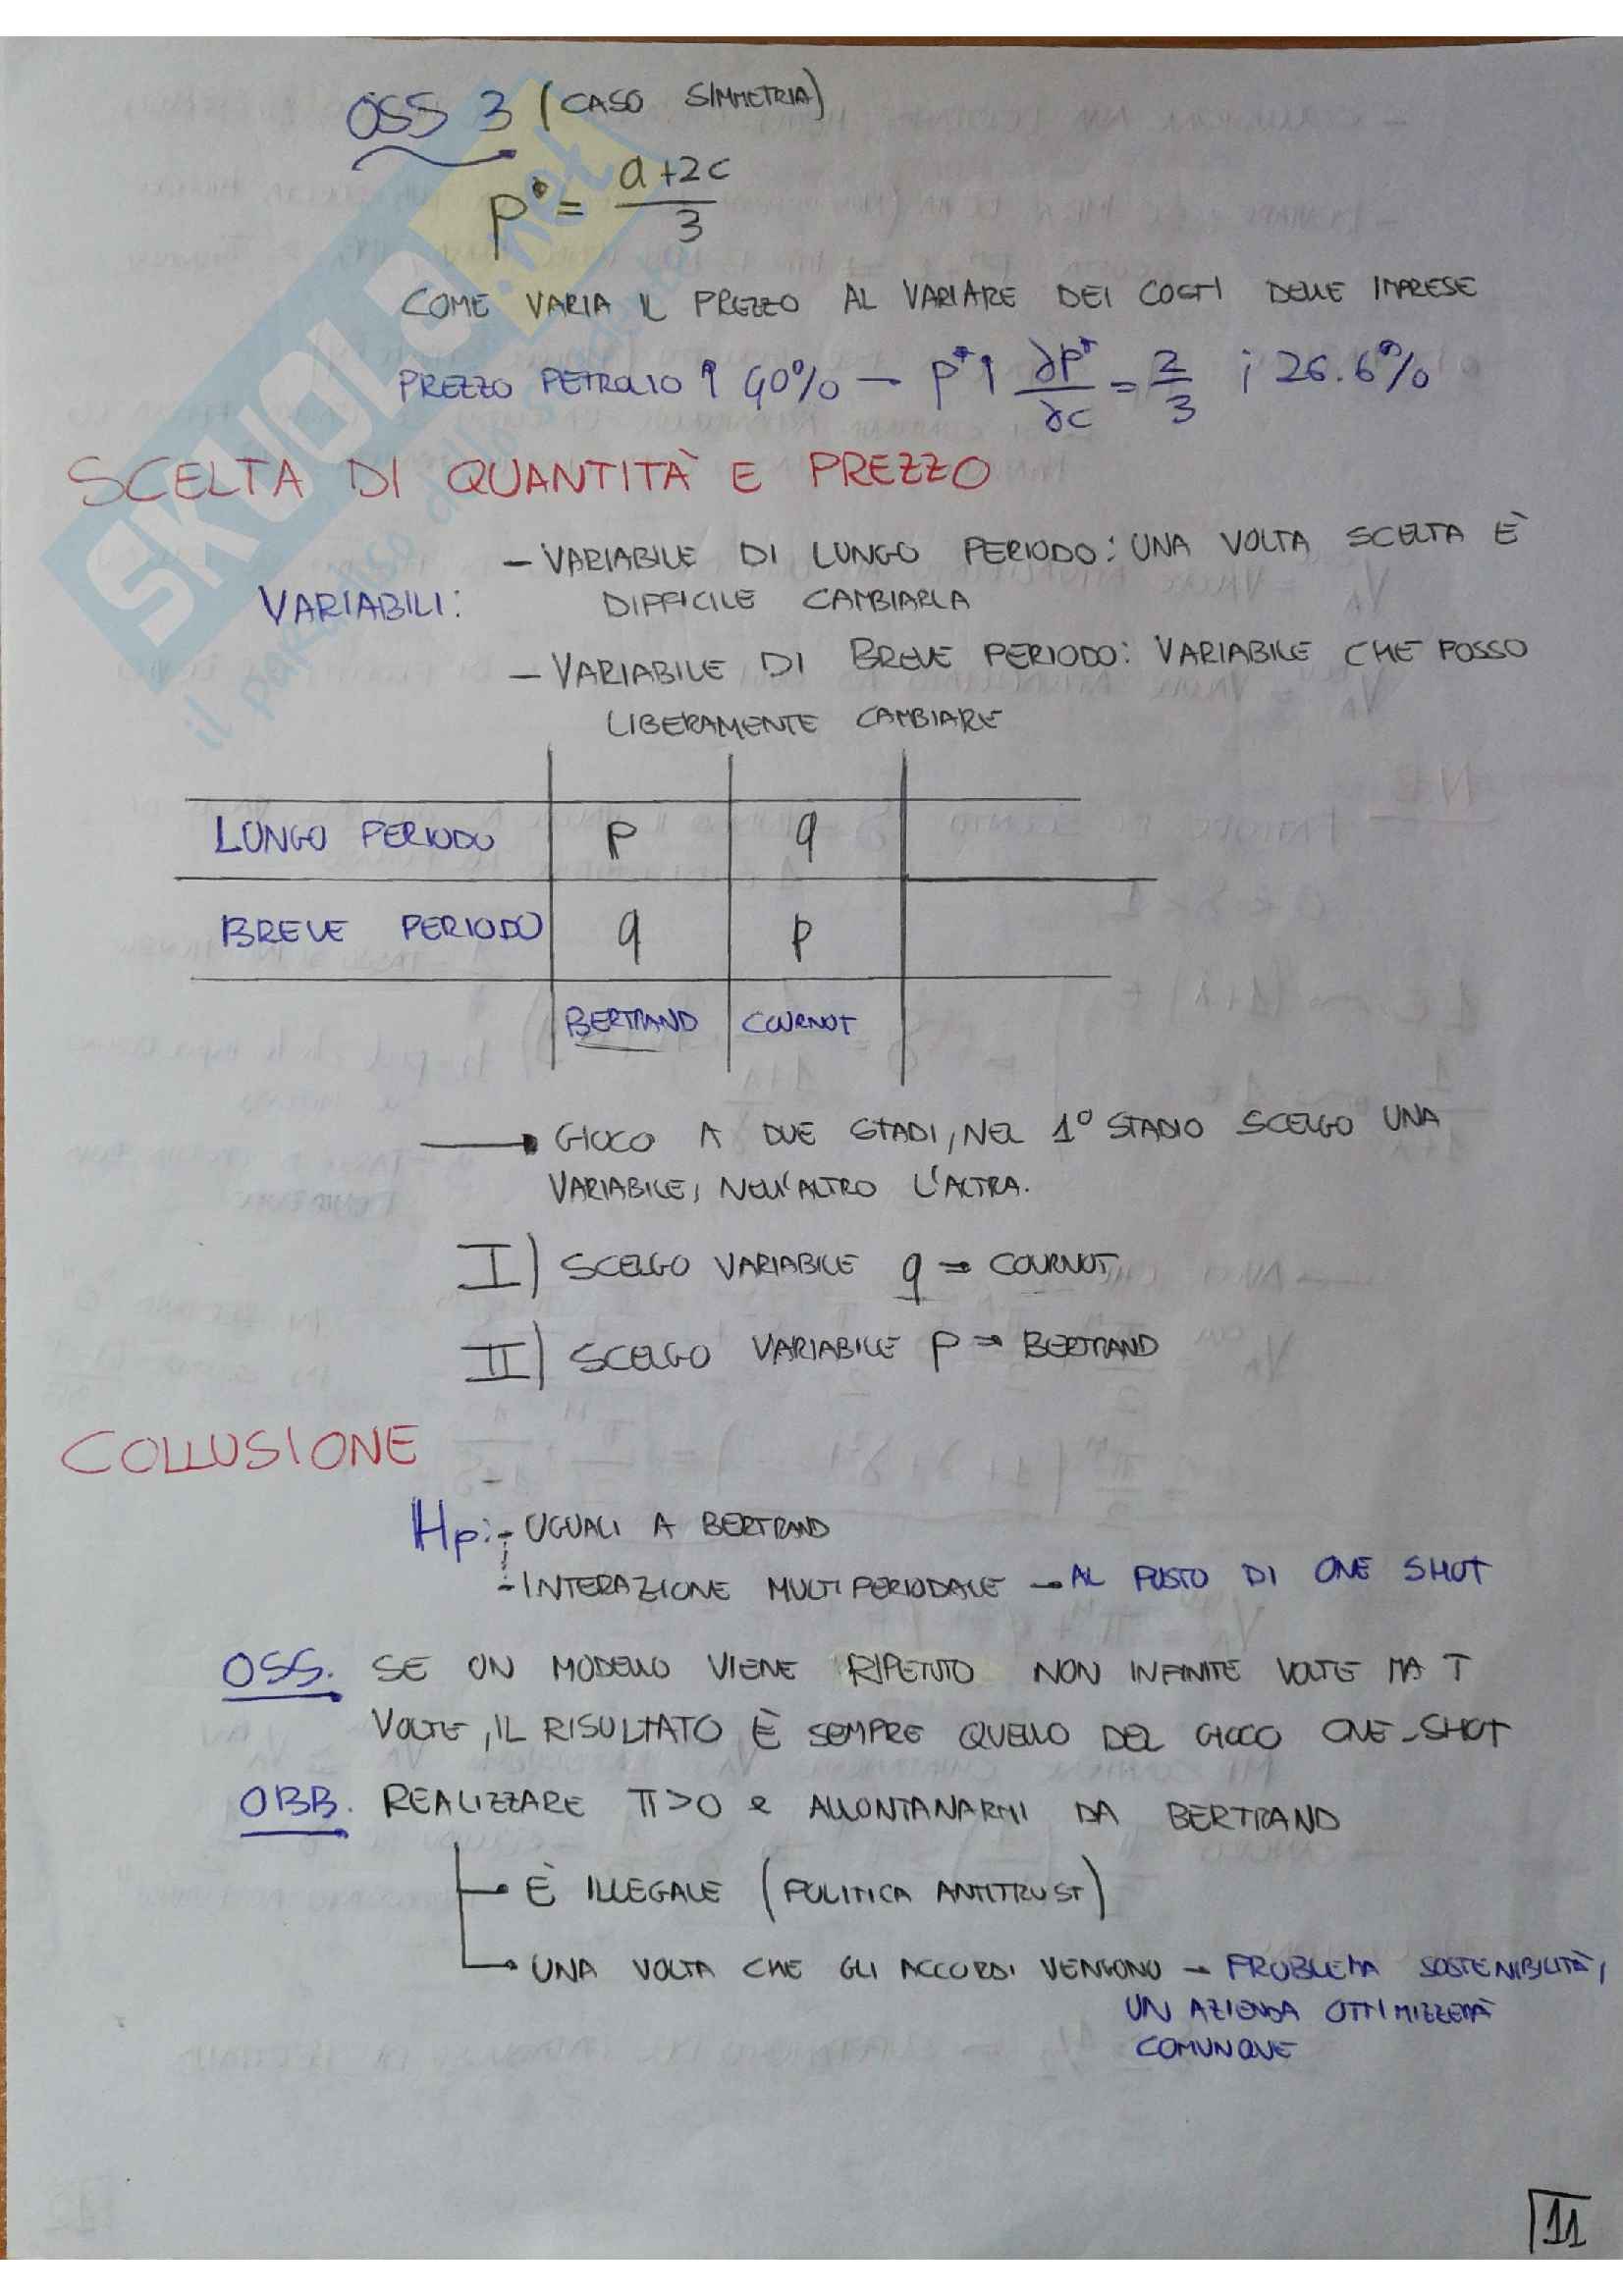 OSS 3 (CASO SIMMETRIA)
p* = a+2c / 3
COME VARIA IL PREZZO AL VARIARE DEI COSTI DELLE IMPRESE
PREZZO PETROLIO ↑ 40% – p* ↑ ∂p*/∂c = 2/3 ; 26.6%
SCELTA DI QUANTITÀ E PREZZO
VARIABILI:
– VARIABILE DI LUNGO PERIODO: UNA VOLTA SCELTA È
DIFFICILE CAMBIARLA
– VARIABILE DI BREVE PERIODO: VARIABILE CHE POSSO
LIBERAMENTE CAMBIARE
LUNGO PERIODO p q
BREVE PERIODO q p
BERTRAND COURNOT
→ GIOCO A DUE STADI, NEL 1° STADIO SCELGO UNA
VARIABILE, NELL'ALTRO L'ALTRA.
I) SCELGO VARIABILE q ⇒ COURNOT
II) SCELGO VARIABILE p ⇒ BERTRAND
COLLUSIONE
Hp: - UGUALI A BERTRAND
- INTERAZIONE MULTIPERIODALE → AL POSTO DI ONE SHOT
OSS. SE UN MODELLO VIENE RIPETUTO NON INFINITE VOLTE MA T
VOLTE, IL RISULTATO È SEMPRE QUELLO DEL GIOCO ONE-SHOT
OBB. REALIZZARE π>0 e ALLONTANARMI DA BERTRAND
→ È ILLEGALE (POLITICA ANTITRUST)
→ UNA VOLTA CHE GLI ACCORDI VENGONO → PROBLEMA SOSTENIBILITÀ,
UN AZIENDA OTTIMIZZERÀ
COMUNQUE
11
SKUOLA.net
il paradiso dello studente